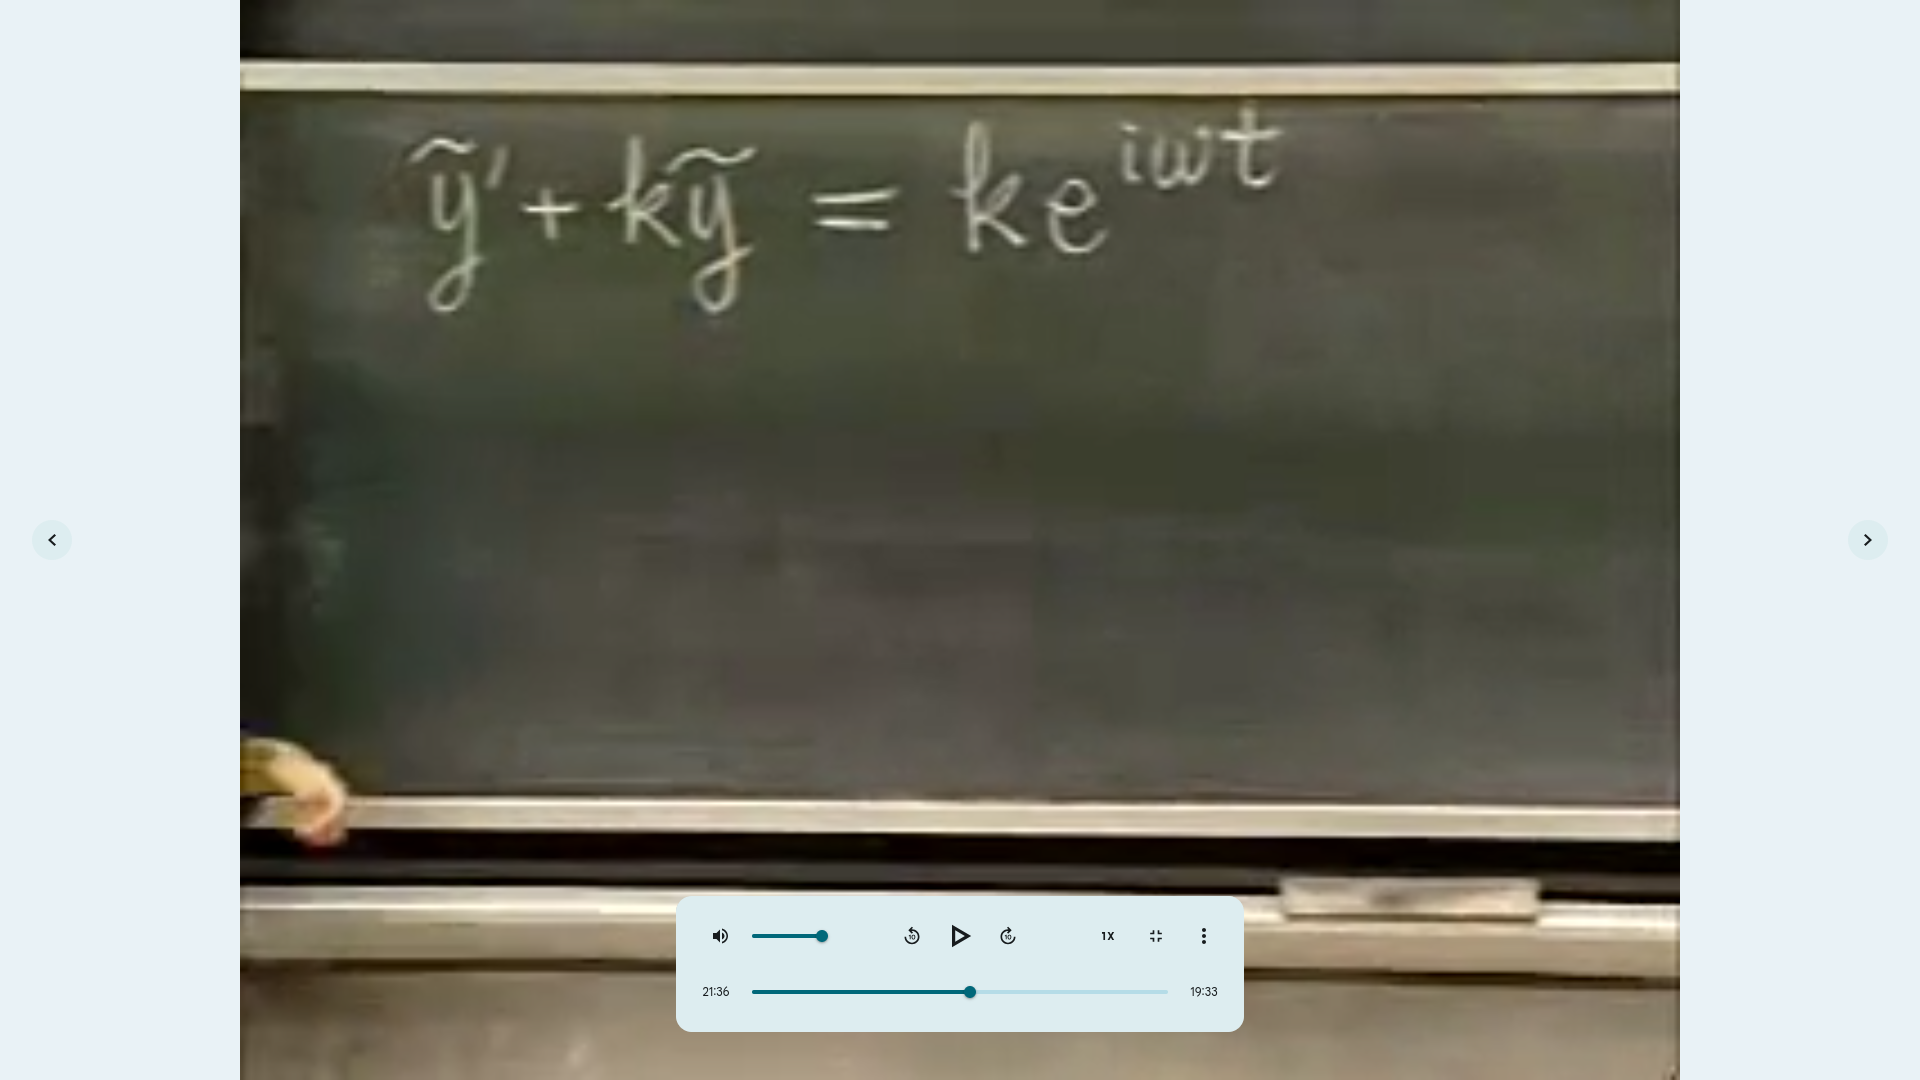 ỹ' + kỹ = ke^{iωt}
10 10 1X
21:36 19:33